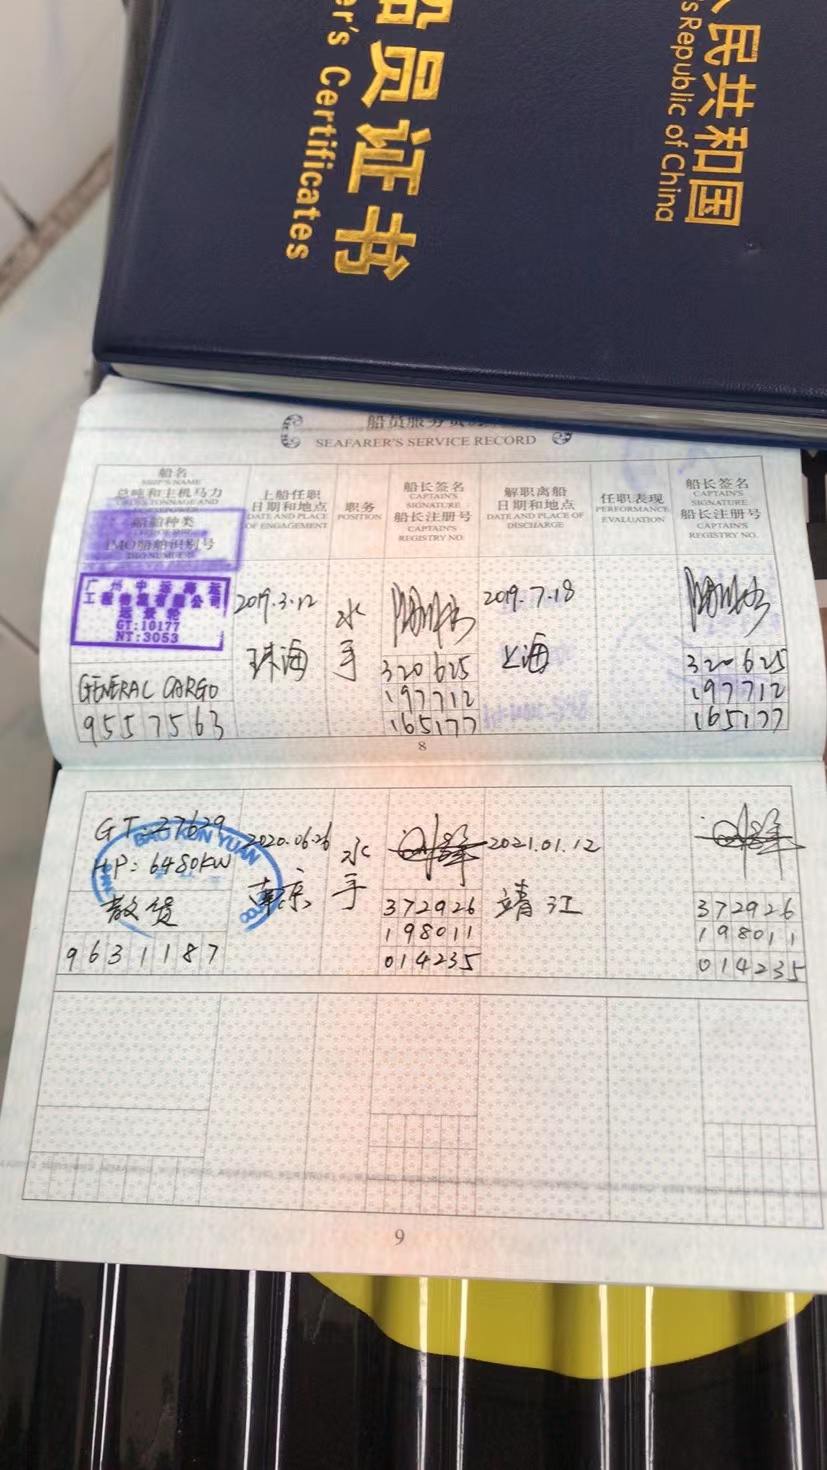 员证书
er's Certificates
人民共和国
's Republic of China
SEAFARER'S SERVICE RECORD
船名
SHIP'S NAME
总吨和主机马力
船舶种类
IMO船舶识别号
上船任职
日期和地点
DATE AND PLACE
OF ENGAGEMENT
职务
POSITION
船长签名
CAPTAIN'S
SIGNATURE
船长注册号
CAPTAIN'S
REGISTRY NO.
解职离船
日期和地点
DATE AND PLACE OF
DISCHARGE
任职表现
PERFORMANCE
EVALUATION
船长签名
CAPTAIN'S
SIGNATURE
船长注册号
CAPTAIN'S
REGISTRY NO.
广州中远海运
GT:10177
NT:3053
GENERAL CARGO
9557563
2019.3.12
珠海
水手
320625
197712
165177
2019.7.18
上海
320625
197712
165177
8
GT:27629
HP: 6480KW
散货
9631187
BAO RUN YUAN
2020.06.26
南京
水手
372926
198011
014235
2021.01.12
靖江
372926
198011
014235
9